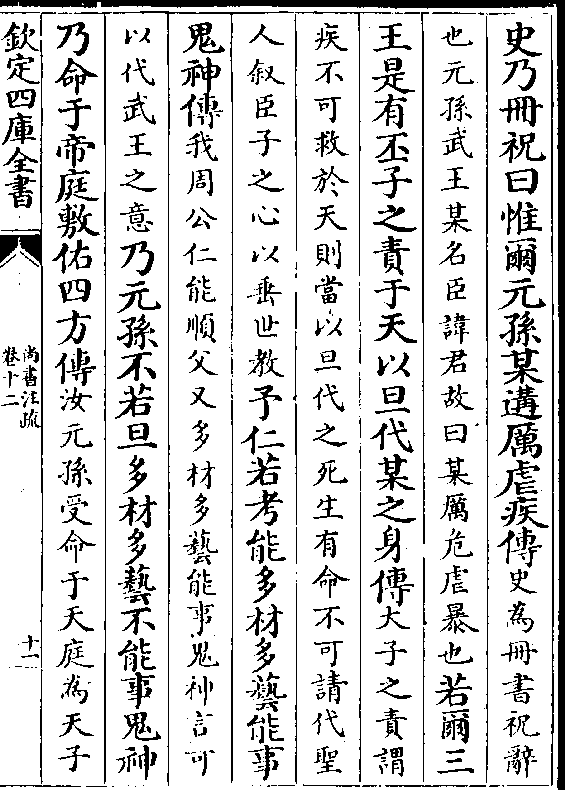 史乃冊祝曰惟爾元孫某遘厲虐疾傳史為冊書祝辭
也元孫武王某名臣諱君故曰某厲危虐暴也若爾三
王是有丕子之責于天以旦代某之身傳大子之責謂
疾不可救於天則當以旦代之死生有命不可請代聖
人叙臣子之心以垂世教予仁若考能多材多藝能事
鬼神傳我周公仁能順父又多材多藝能事鬼神言可
以代武王之意乃元孫不若旦多材多藝不能事鬼神
乃命于帝庭敷佑四方傳汝元孫受命于天庭為天子
欽定四庫全書
尚書注疏
卷十二
十一